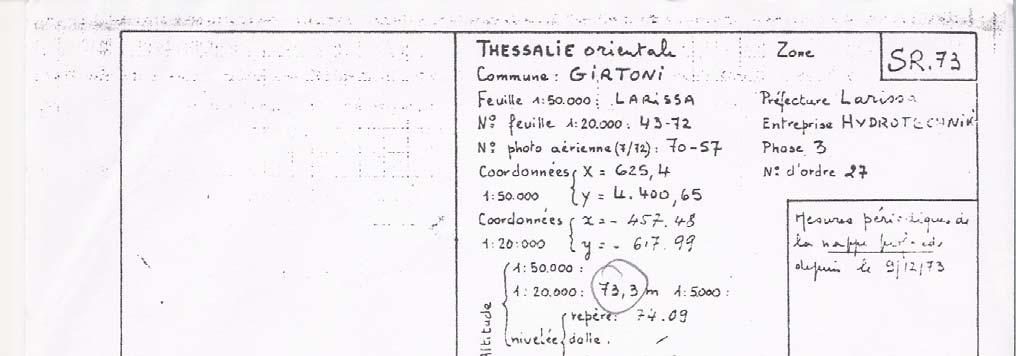 THESSALIE orientale Zone SR.73
Commune : GIRTONI
Feuille 1:50.000 : LARISSA Préfecture Larissa
N° feuille 1:20.000 : 43-72 Entreprise HYDROTECHNIK
N° photo aérienne (7/72) : 70-57 Phase 3
Coordonnées X = 625,4 N° d'ordre 27
1:50.000 y = 4.400,65
Coordonnées x = - 457.48
1:20:000 y = - 617.99
Mesures périodiques de
la nappe
depuis le 9/12/73
Altitude
1:50.000 :
1:20.000 : 73,3 m 1:5.000 :
nivelée
repère : 74.09
dalle .